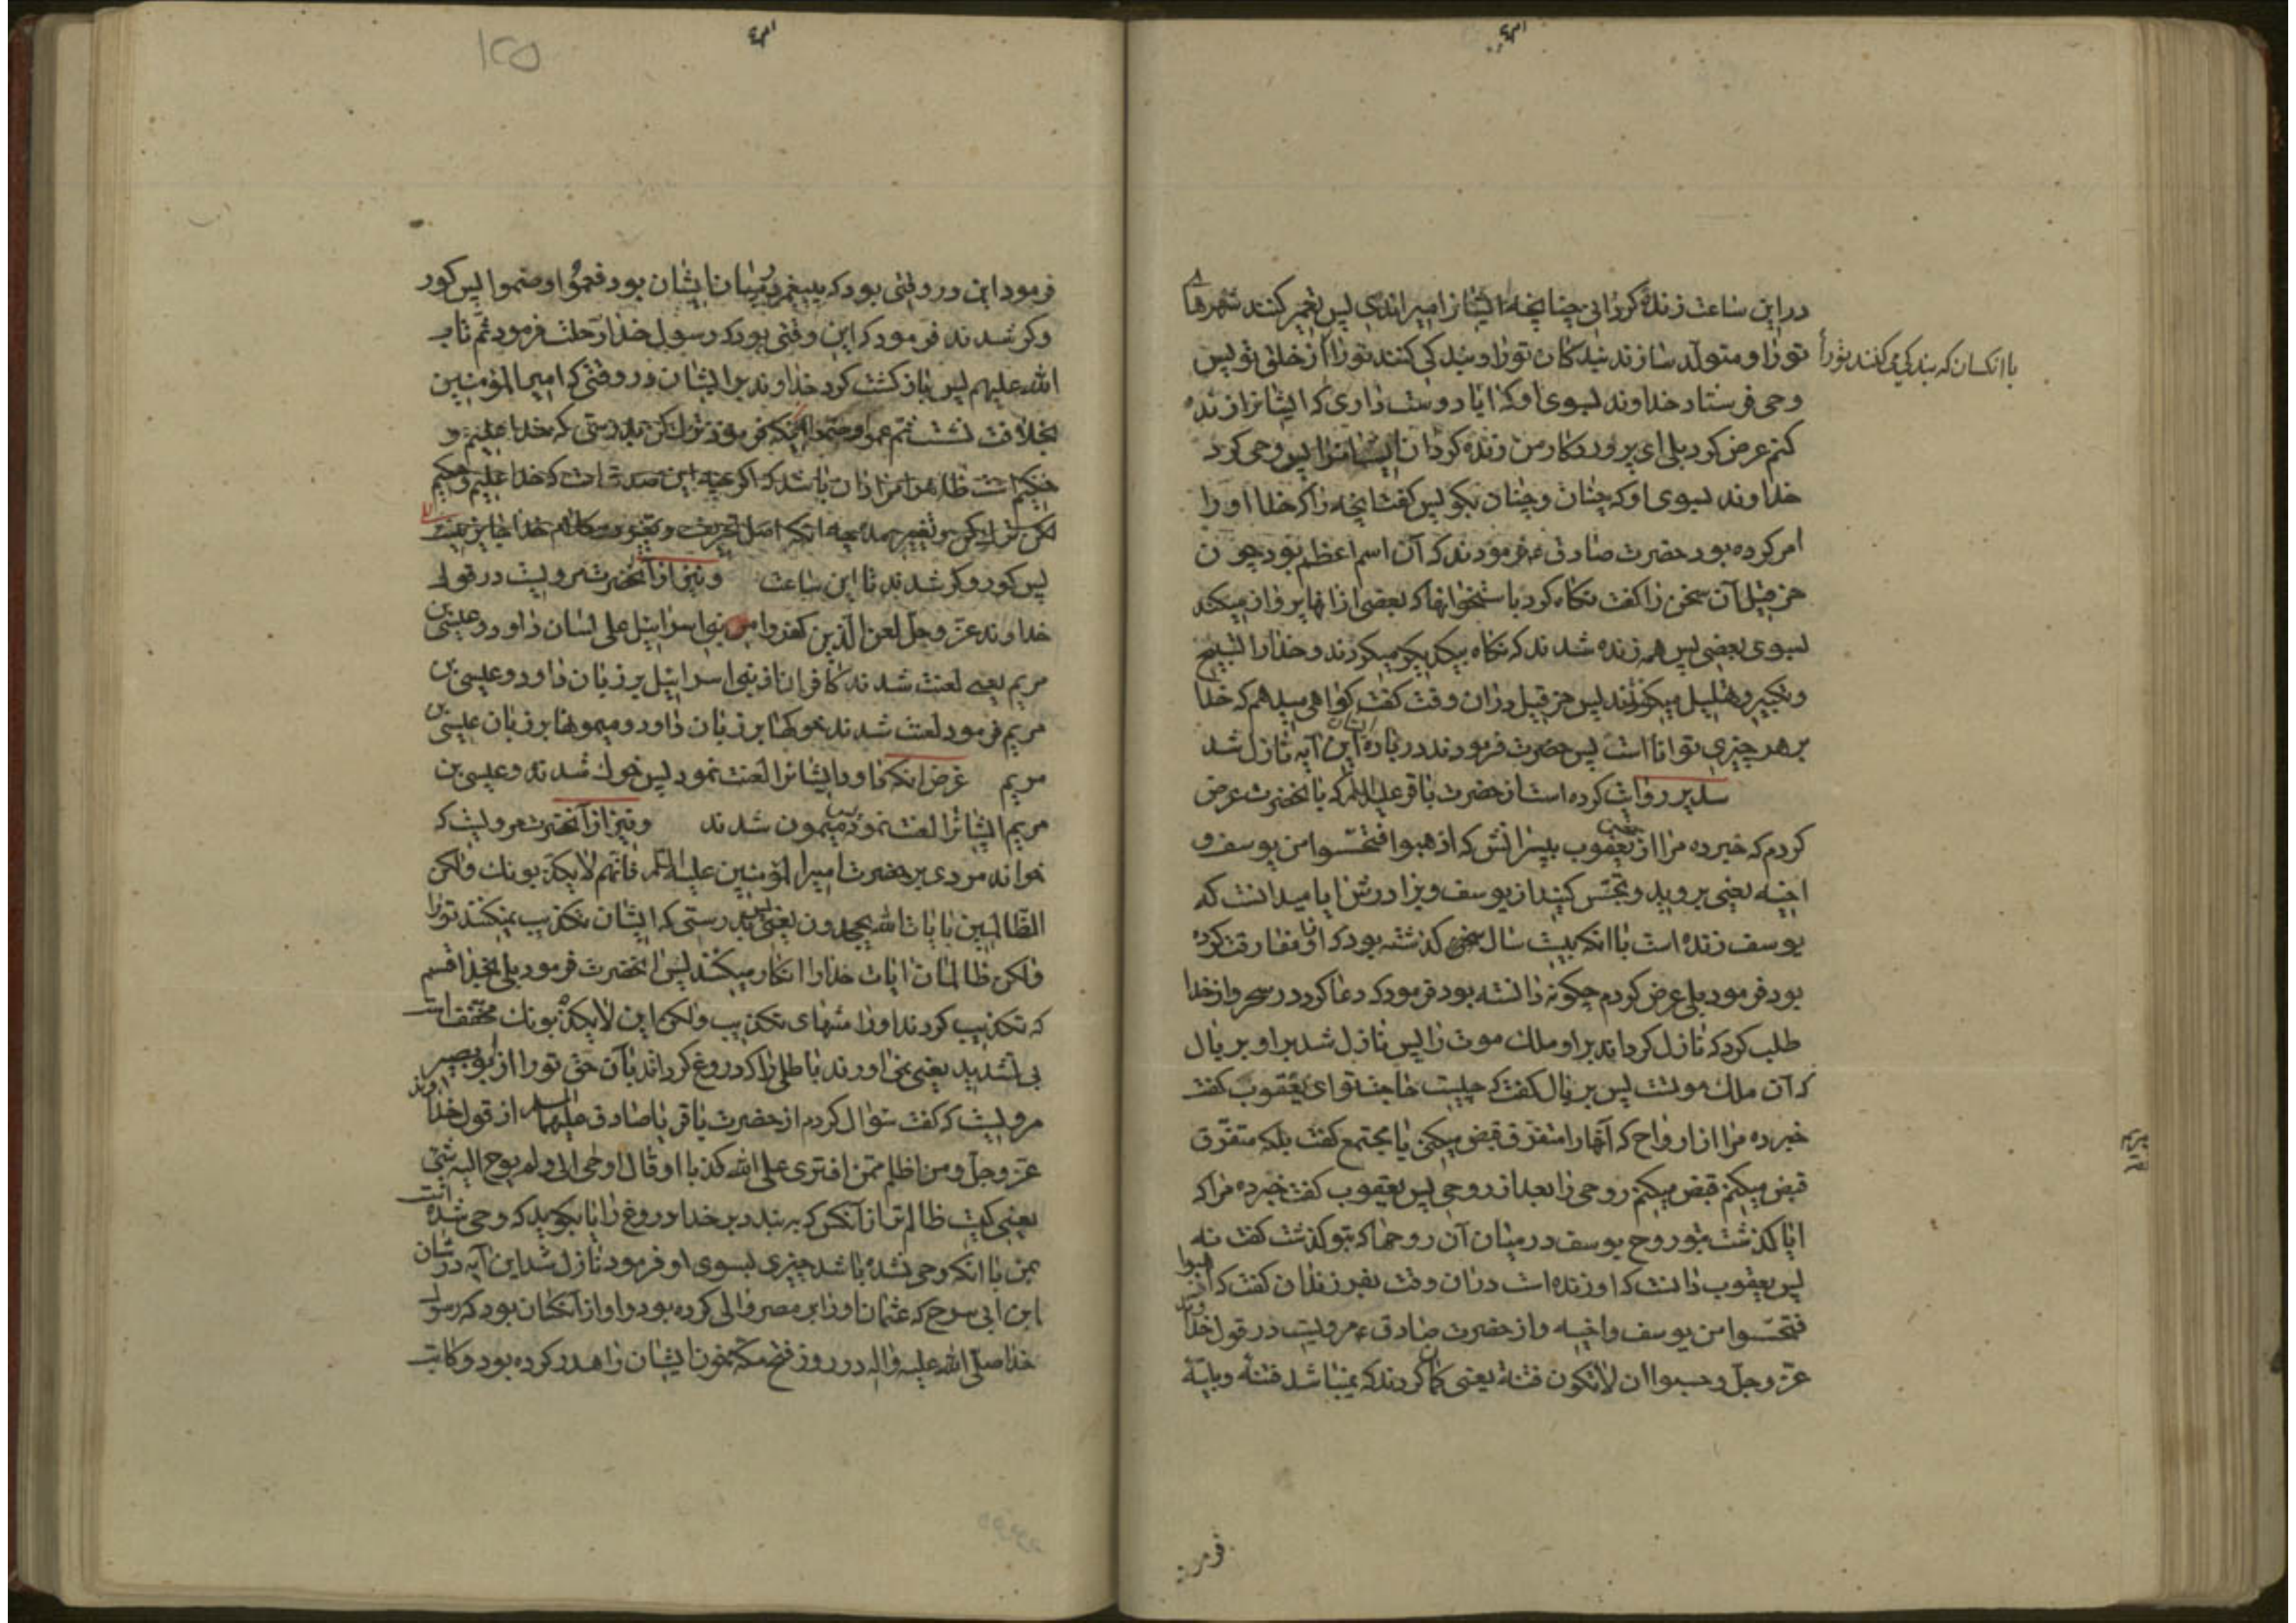 در این ساعت زنده گردانی چنانچه ایشانرا میراندی پس تعمیر کنند شهرهای
تو را و متولد سازند بندکان تو را و بندکی کنند تو را از خلق تو پس
با انکسان که بندکی میکنند تو را
وحی فرستاد خداوند بسوی او که ایا دوست داری که ایشانرا زنده
کنم عرض کرد بلی ای پروردکار من زنده کردان ایشانرا پس وحی کرد
خداوند بسوی او که چنان و چنان بکو پس کفت انچه را که خدا او را
امر کرده بود حضرت صادق ع فرمودند که آن اسم اعظم بود چون
حزقیل آن سخن را کفت نکاه کرد باستخوانها که بعضی از انها پرواز میکند
بسوی بعضی پس همه زنده شدند که نکاه بیکدیکر میکردند و خدا را تسبیح
و تکبیر و تهلیل میکردند پس حزقیل در ان وقت کفت کواهی میدهم که خدا
بر هر چیزی توانا است پس حضرت فرمودند در باره ایشان این آیه نازل شد
سدیر روایت کرده است از حضرت باقر علیه السلام که بانحضرت عرض
کردم که خبر ده مرا از یعقوب بپسرانش که اذهبوا فتحسسوا من یوسف و
اخیه یعنی بروید و تجسس کنید از یوسف و برادرش ایا میدانست که
یوسف زنده است با انکه بیست سال کذشته بود که او مفارقت کرده
بود فرمود بلی عرض کردم چکونه دانسته بود فرمود که دعا کرد در سحر و از خدا
طلب کرد که نازل کرداند بر او ملک موت را پس نازل شد بر او بریال
که آن ملک موتست پس بریال کفت که چیست حاجت تو ای یعقوب کفت
خبر ده مرا از ارواح که آنها را متفرق قبض میکنی یا مجتمع کفت بلکه متفرق
قبض میکنم قبض میکنم روحی را بعد از روحی پس یعقوب کفت خبر ده مرا که
ایا کذشت بتو روح یوسف در میان آن روحها که بتو کذشت کفت نه
پس یعقوب دانست که او زنده است در ان وقت بفرزندان کفت که اذهبوا
فتحسسوا من یوسف و اخیه و از حضرت صادق ع مرویست در قول خداوند
عز و جل و حسبوا ان لا تکون فتنة یعنی کمان کردند که نمیباشد فتنه و بلیه
فرمود
فرمود این در وقتی بود که پیغمبر در میان ایشان بود فعموا و صموا پس کور
و کر شدند فرمود که این وقتی بود که رسول خدا رحلت فرمود ثم تاب
الله علیهم پس بازکشت کرد خداوند بر ایشان در وقتی که امیر المؤمنین
بخلافت نشست ثم عموا و صموا
پس کور و کر شدند تا این ساعت و نیز از آنحضرت مرویست در قول
خداوند عز و جل لعن الذین کفروا من بنی اسرائیل علی لسان داود و عیسی بن
مریم یعنی لعنت شدند کافران از بنی اسرائیل بر زبان داود و عیسی بن
مریم فرمود لعنت شدند خوکها بر زبان داود و میمونها بر زبان عیسی بن
مریم غرض انکه داود ایشانرا لعنت نمود پس خوک شدند و عیسی بن
مریم ایشانرا لعنت نمود پس میمون شدند و نیز از آنحضرت مرویست که
خواند مردی بر حضرت امیر المؤمنین علیه السلام فانهم لا یکذبونک ولکن
الظالمین بایات الله یجحدون یعنی پس بدرستی که ایشان تکذیب نمیکنند تو را
ولکن ظالمان ایات خدا را انکار میکنند پس انحضرت فرمود بلی بخدا قسم
که تکذیب کردند او را منتهای تکذیب ولکن این لا یکذبونک مخفف است
بی تشدید یعنی نمی اورند باطلی را که دروغ کردانند بآن حق تو را از ابو بصیر
مرویست که کفت سؤال کردم از حضرت باقر یا صادق علیهما السلام از قول خداوند
عز و جل و من اظلم ممن افتری علی الله کذبا او قال اوحی الی و لم یوح الیه شیء
یعنی کیست ظالم تر از آنکس که به بندد بر خدا دروغ را یا بکوید که وحی شده است
بمن با انکه وحی نشده باشد چیزی بسوی او فرمود نازل شد این آیه در شان
ابن ابی سرح که عثمان او را بر مصر والی کرده بود و او از آنکسان بود که رسول
خدا صلی الله علیه و اله در روز فتح مکه خون ایشان را هدر کرده بود و کاتب